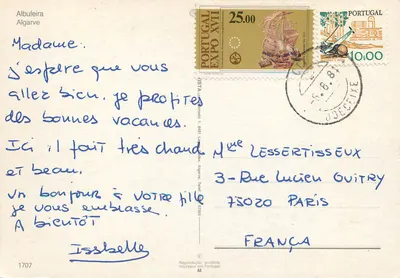 Albufeira
Algarve
Madame.
j'espère que vous
allez bien. je profites
des bonnes vacances.
Ici il fait très chaud
et beau.
un bonjour à votre fille
je vous embrasse.
A bientôt
Issbelle
1707
PORTUGAL
EXPO XVII
25.00
PORTUGAL
10.00
Mme LESSERTISSEUX
3-Rue Lucien GUITRY
75020 PARIS
FRANÇA